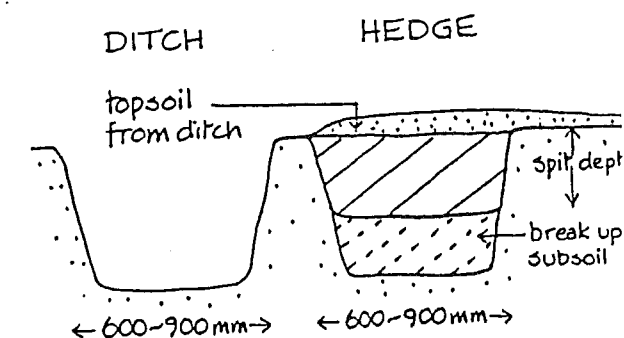 DITCH HEDGE
topsoil
from ditch
spit dept
break up
subsoil
←600~900mm→ ←600~900mm→